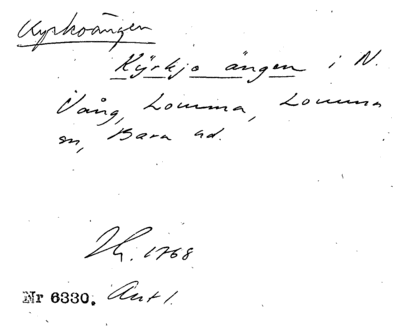 Kyrkoängen
Kÿrkjo ängen i N.
Vång, Lomma, Lomma
sn, Bara hd.
Nr 6330. Akt 1.